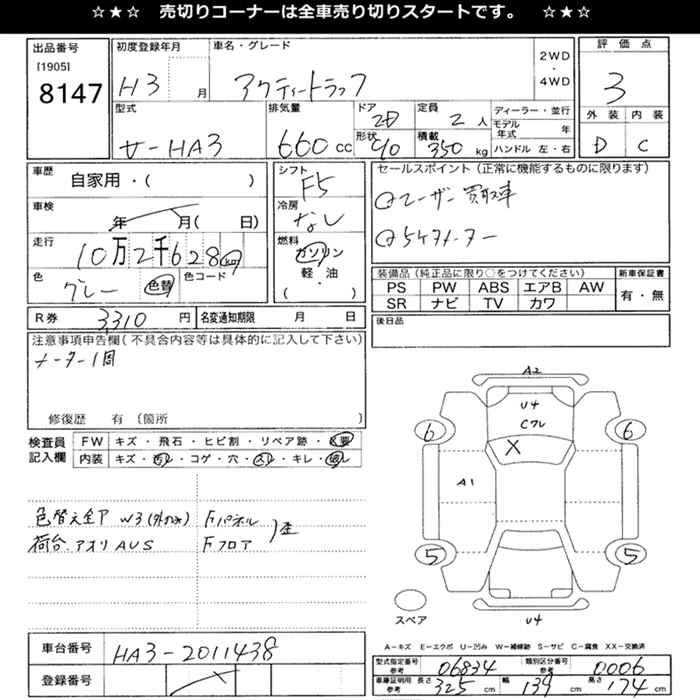 ☆★☆ 売切りコーナーは全車売り切りスタートです。 ☆★☆
出品番号
[1905]
8147
初度登録年月
H3 月
車名・グレード
アクティートラック
2WD
・
4WD
評価点
3
外装 内装
D C
型式
サ-HA3
排気量
660 cc
ドア
2D
形状
定員
2 人
積載
350 kg
ディーラー・並行
モデル年式 年
ハンドル 左・右
車歴
自家用・( )
車検
年 月( 日)
走行
10万2千628km
色
グレー 色替
色コード
シフト
F5
冷房
なし
燃料
ガソリン
軽・油
・
( )
セールスポイント(正常に機能するものに限ります)
①ユーザー買取車
②5ケタメーター
装備品(純正品に限り○をつけてください)
PS PW ABS エアB AW
SR ナビ TV カワ
新車保証書
有・無
後日品
R券 3,310 円 名変通知期限 月 日
注意事項申告欄(不具合内容等は具体的に記入して下さい)
メーター1周
修復歴 有 〔箇所 〕
検査員記入欄
FW キズ・飛石・ヒビ割・リペア跡・X要
内装 キズ・汚レ・コゲ・穴・スレ・キレ・破レ
色替え全ア W3(外のみ)
荷台.アオリ AUS
Fパネル
Fフロア
A2
U4
Cフレ
X
6 6
A1
5 5
スペア
U4
車台番号 HA3-2011438
登録番号
A-キズ E-エクボ U-凹み W-補修跡 S-サビ C-腐食 XX-交換済
型式指定番号 参考 06834 類別区分番号 参考 0006
車庫証明用 参考 長さ 325 cm 幅 139 cm 高さ 174 cm